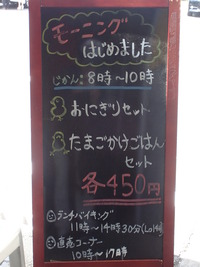 モーニング
はじめました
じかん：8時〜10時
おにぎりセット
たまごかけごはん
セット
各450円
ランチバイキング
11時〜14時30分(Lo14:00)
直売コーナー
10時〜17時